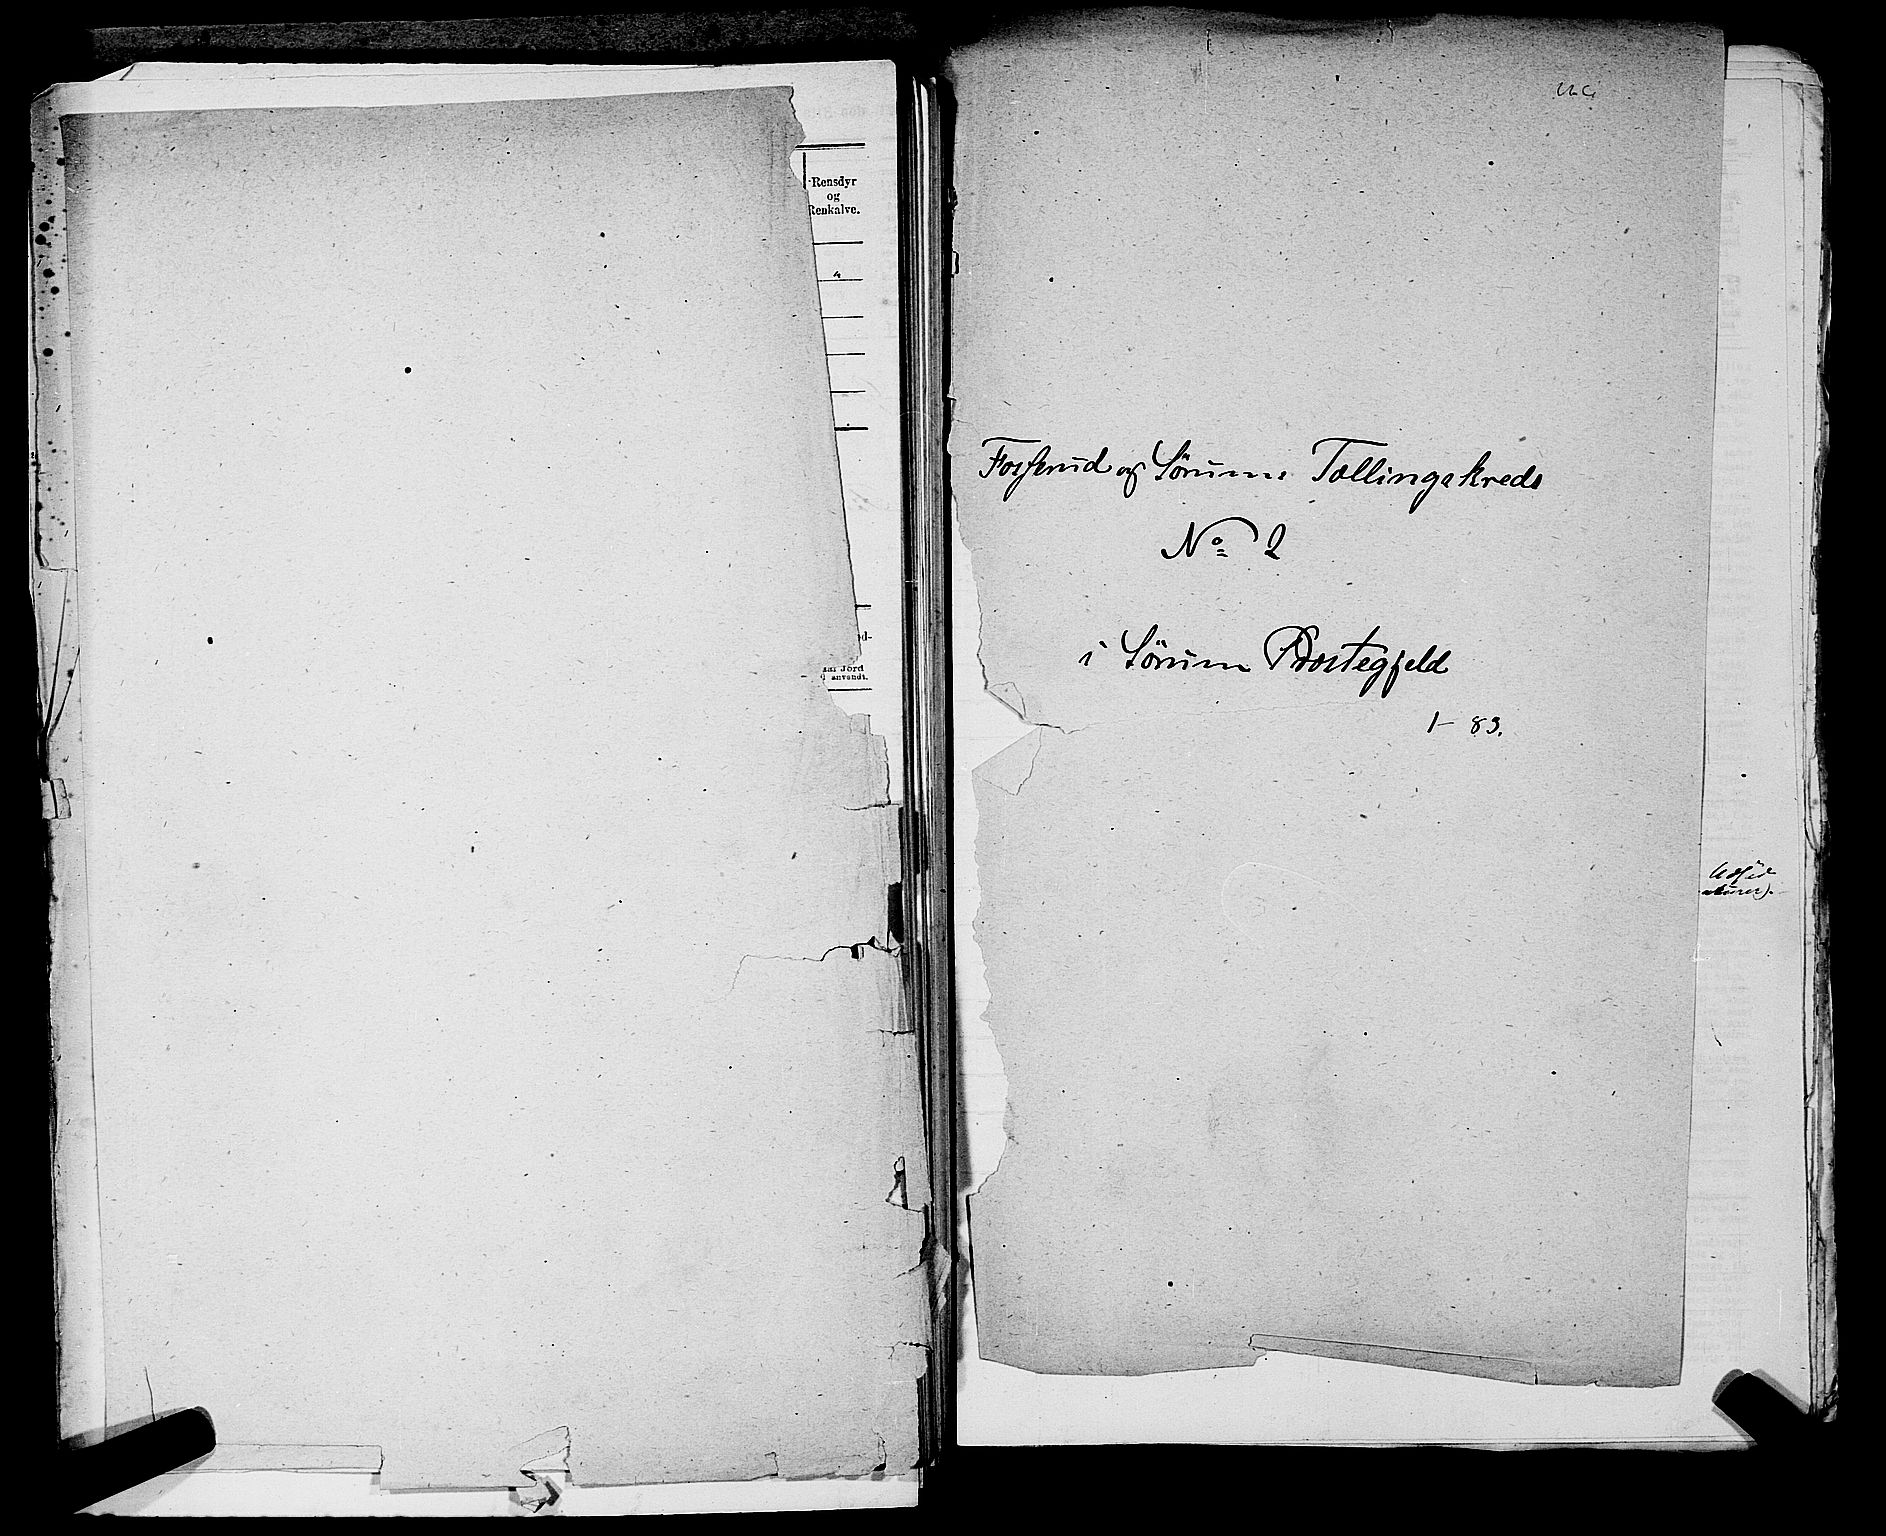 Rensdyr
og
Renkalve.
4
aar Jord
anvendt.
Fosserud og Sørums Tællingskreds
No 2
i Sørum Præstegjeld
1-83.